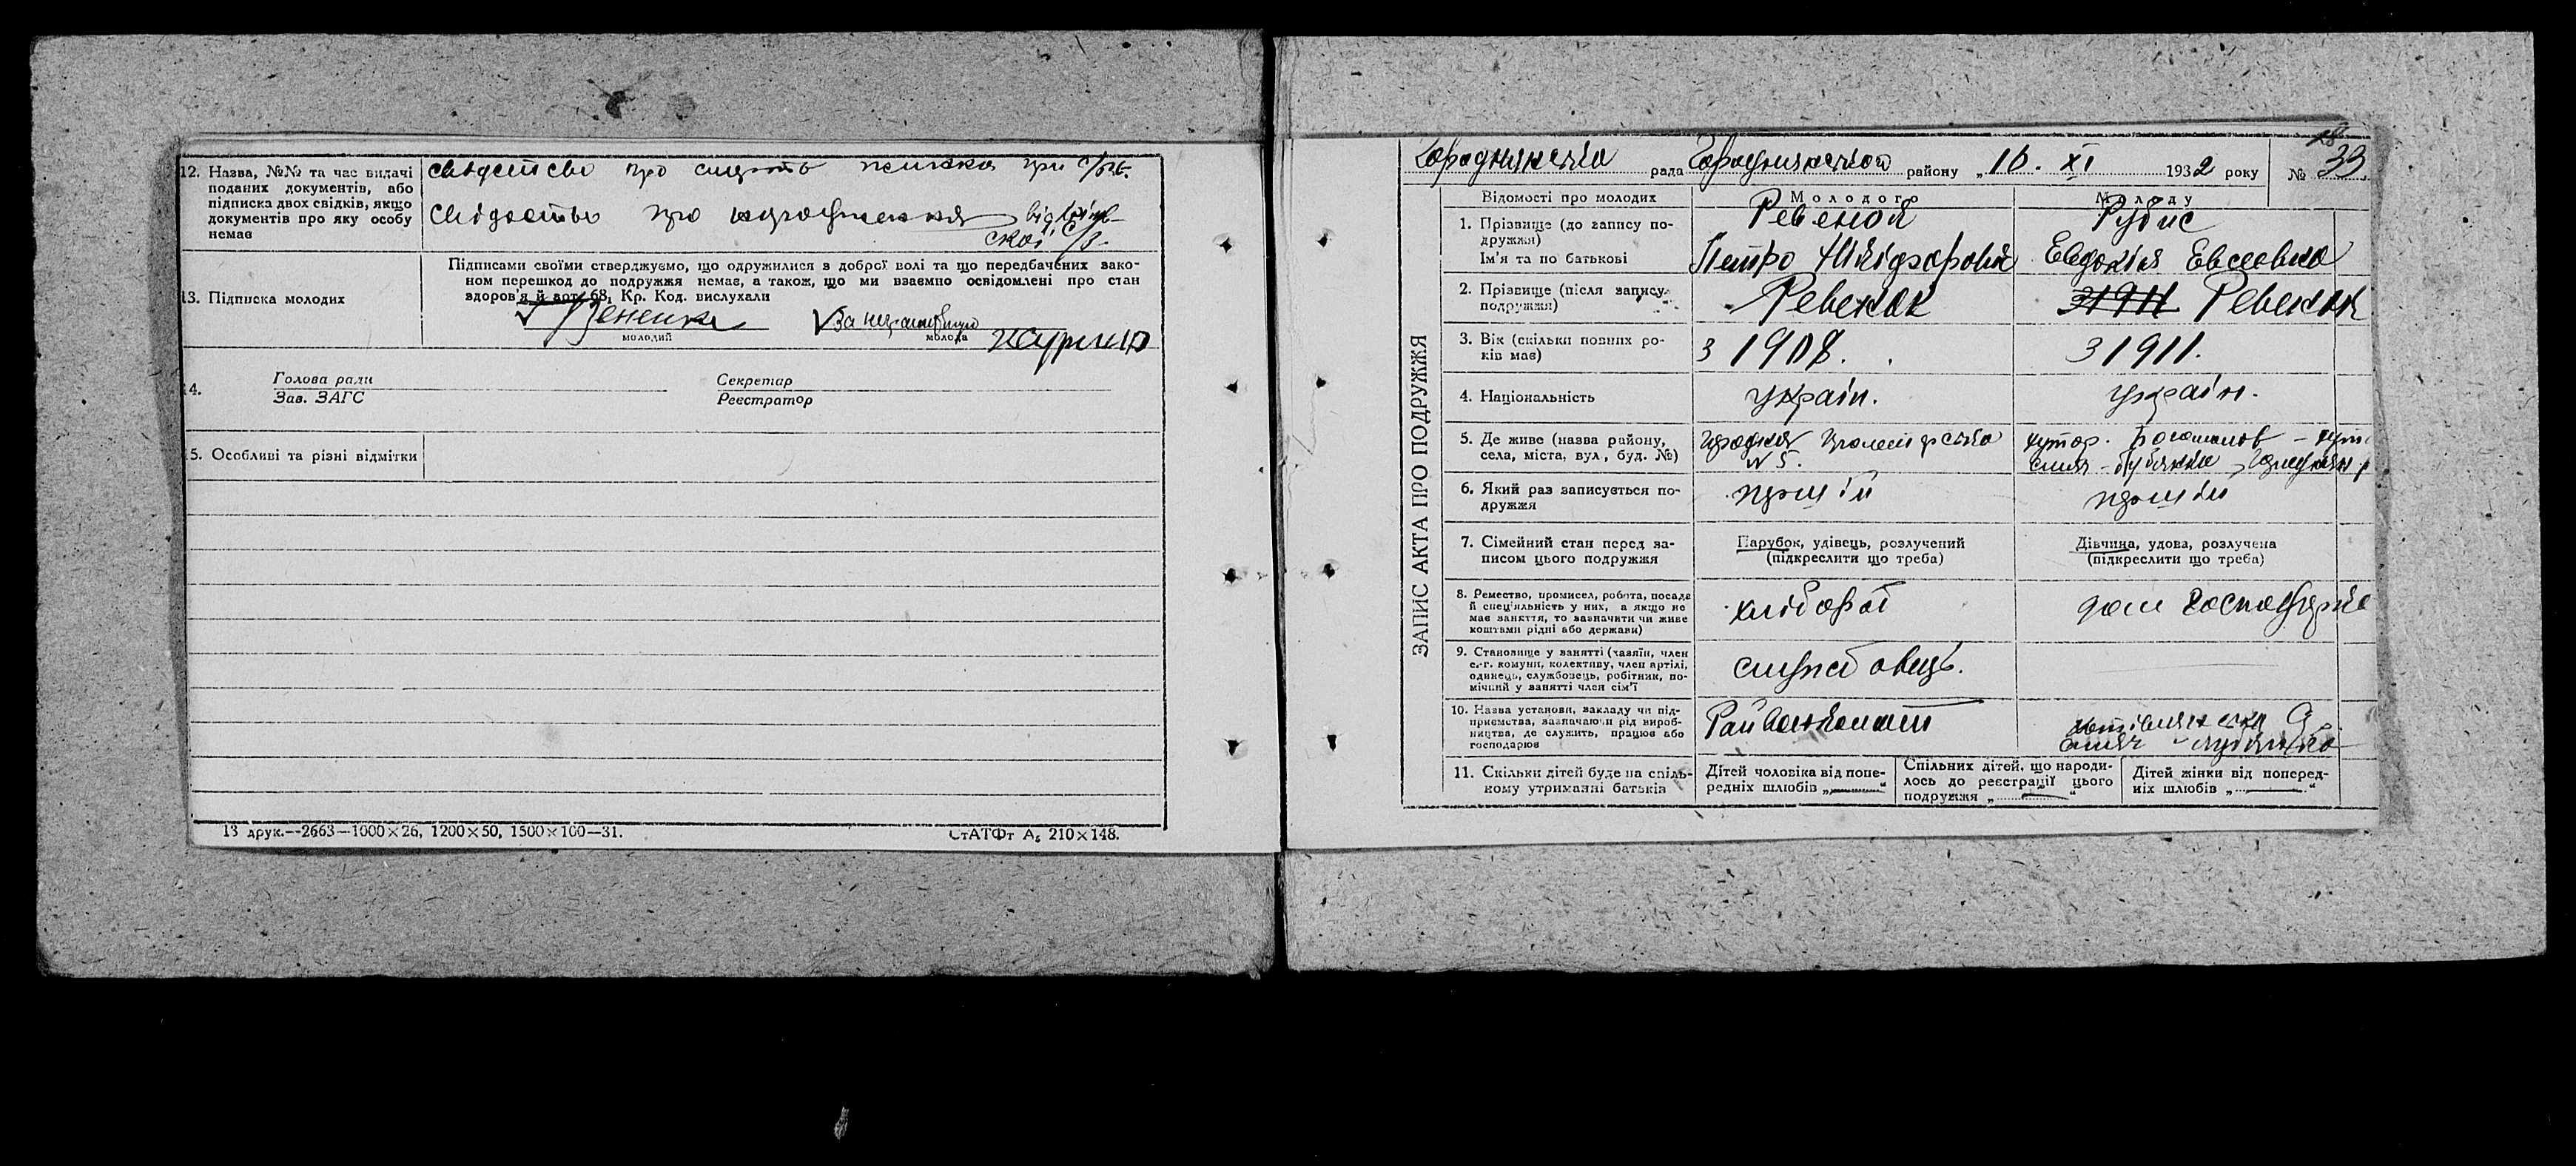 12. Назва, №№ та час видачі
поданих документів, або
підписка двох свідків, якщо
документів про яку особу
немає
про смерть
про від
ської с/р.
Підписами своїми стверджуємо, що одружилися з доброї волі та що передбачених зако-
ном перешкод до подружжя немає, а також, що ми взаємно освідомлені про стан
здоров'я й арт. 68, Кр. Код. вислухали
13. Підписка молодих
молодий
молода
14.
Голова ради
Зав. ЗАГС
Секретар
Реєстратор
15. Особливі та різні відмітки
13 друк.--2663—1000×26, 1200×50, 1500×100—31.
СтАТФт А₅ 210×148.
ЗАПИС АКТА ПРО ПОДРУЖЖЯ
рада району „16. XI 1932 року № 33
Відомості про молодих
Молодого
Молоду
1. Прізвище (до запису по-
дружжя)
Ім'я та по батькові
Ревенок
Петро Нікіфорович
Рубис
Евдокія Евсеевна
2. Прізвище (після запису
подружжя)
Ревенок
Ревенок
3. Вік (скільки повних ро-
ків має)
з 1908.
з 1911.
4. Національність
україн.
україн.
5. Де живе (назва району,
села, міста, вул., буд. №)
N 5.
хутор.
6. Який раз записується по-
дружжя
перший
перший
7. Сімейний стан перед за-
писом цього подружжя
Парубок, удівець, розлучений
(підкреслити що треба)
Дівчина, удова, розлучена
(підкреслити що треба)
8. Ремество, промисел, робота, посада
й спец'яльність у них, а якщо не
має заняття, то зазначити чи живе
коштами рідні або держави)
хлібороб
дом
9. Становище у занятті (хазяїн, член
с.-г. комуни, колективу, член артілі,
одинець, службовець, робітник, по-
мічний у занятті член сім'ї
службовець.
10. Назва установи, закладу чи під-
приємства, зазначаючи рід вироб-
ництва, де служить, працює або
господарює
11. Скільки дітей буде на спіль-
ному утриманні батьків
Дітей чоловіка від попе-
редніх шлюбів „—“
Спільних дітей, що народи-
лось до реєстрації цього
подружжя „—“
Дітей жінки від поперед-
ніх шлюбів „—“